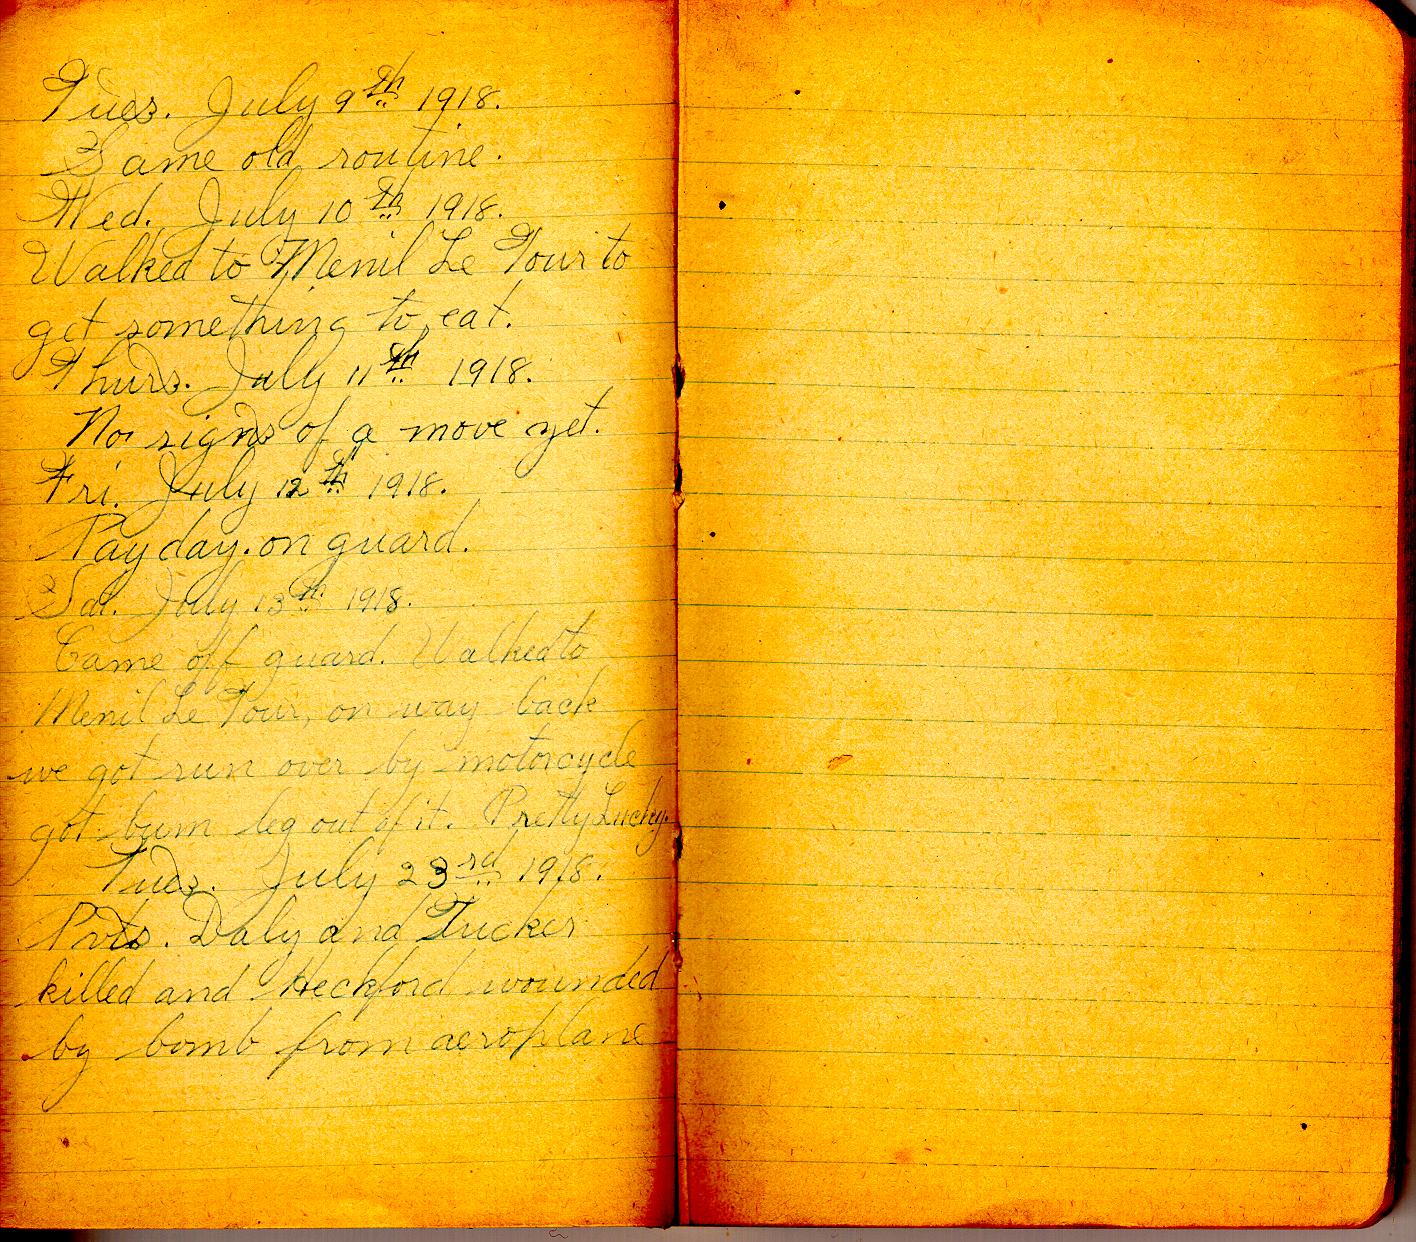 Tues. July 9th 1918.
Same old routine.
Wed. July 10th 1918.
Walked to Menil Le Tour to
get something to eat.
Thurs. July 11th 1918.
No signs of a move yet.
Fri. July 12th 1918.
Payday. on guard.
Sat. July 13th 1918.
Came off guard. Walked to
Menil Le Tour, on way back
we got run over by motorcycle
got bum leg out of it. Pretty Lucky.
Tues. July 23rd 1918.
Pvts. Daly and Tucker
killed and Heckford wounded
by bomb from aeroplane